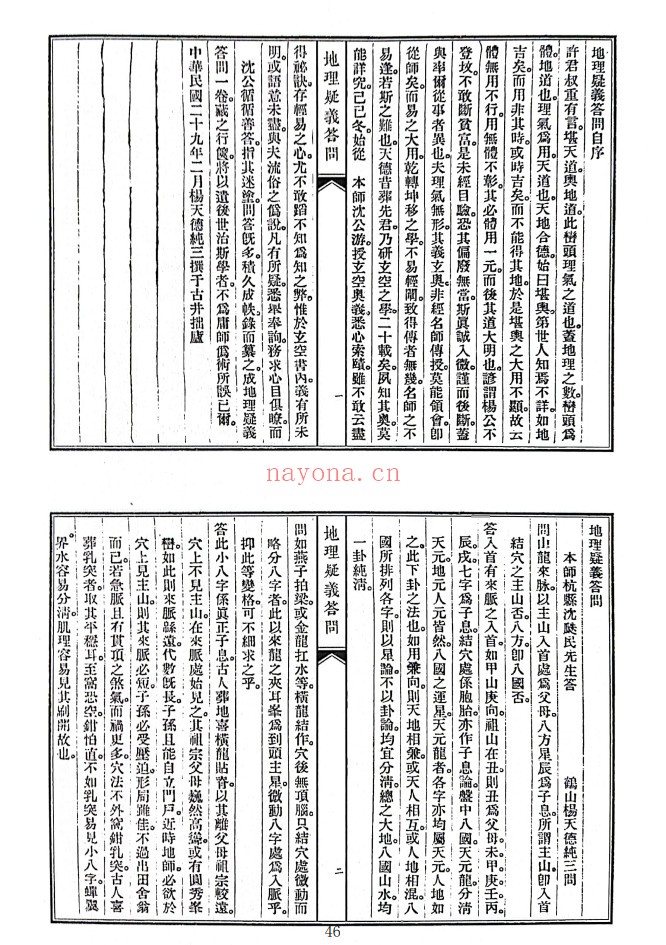 地理疑義答問自序
許君叔重有言。堪天道輿地道。此巒頭理氣之道也。蓋地理之數。巒頭爲
體。地道也。理氣爲用。天道也。天地合德。始曰堪輿。第世人知焉不詳。如地
吉矣。而用非其時。或時吉矣。而不能得其地。於是堪輿之大用不顯。故云
體無用不行。用無體不彰。其必體用一元。而後其道大明也。諺謂楊公不
登攻不敢斷。貧富是未經目驗。恐其偏廢無當。斯眞誠入微。謹而後斷。蓋
與率爾從事者異也。夫理氣無形。其義玄奧。非經名師傳授。莫能領會。卽
從師矣。而易之大用。乾轉坤移之學。不易輕闡。致得傳者無幾。名師之不
易逢。若斯之難也。天德昔葬先君。乃研玄空之學。二十載矣。夙知其奧。莫
能詳究。己巳冬。始從 本師沈公游。授玄空奧義。悉心索賾。雖不敢云盡
地理疑義答問
一
得祕訣。存輕易之心。尤不敢蹈不知爲知之弊。惟於玄空書內。義有所未
明。或語意未盡。與夫流俗之僞說。凡有所疑。悉舉奉詢。務求心目俱瞭而
沈公循循善答。指其迷塗。問答旣多。積久成帙。錄而纂之。成地理疑義
答問一卷。藏之行篋。將以遺後世治斯學者。不爲庸師僞術所誤已爾。
中華民國二十九年二月楊天德純三撰于古井拙廬
nayona.cn
地理疑義答問
本師杭縣沈瓞民先生答 鶴山楊天德純三問
問山龍來脈。以主山入首處爲父母。八方星辰爲子息。所謂主山。卽入首
結穴之主山否。八方卽八國否。
答入首有來脈之入首。如甲山庚向。祖山在丑。則丑爲父母。未甲庚壬丙
辰戌七字爲子息。結穴處係胞胎。亦作子息論。盤中八國天元龍分淸
天元地元人元皆然。八國之運星。天元龍者各字亦均屬天元。人地如
之。此下卦之法也。如用兼向。則天地相兼。或天人相互。或人地相混。八
國所排列各字。則以星論不以卦論。均宜分淸。總之大地八國山水均
一卦純淸。
地理疑義答問
二
問如燕子拍梁。或金龍扛水等橫龍結作。穴後無頂腦。只結穴處微動而
略分八字者。此以來龍之夾耳峯爲到頭主星。微動八字處爲入脈乎。
抑此等變格。可不細求之乎。
答此小八字。係眞正子息。古人葬地喜橫龍貼脊。以其離父母祖宗較遠。
穴上不見主山。在來脈處始見之。其祖宗父母巍然高聳。或有圓秀峯
巒。如此則來脈緜遠。代數旣長。子孫且能自立門戶。近時地師必欲於
穴上見主山。則其來脈必短。子孫必受壓迫。形局雖佳。不過出田舍翁
而已。若急脈且有貫頂之煞氣。而禍更多。穴法不外窩鉗乳突。古人喜
葬乳突者。取其平穩耳。至窩恐空。鉗怕直。不如乳突易見小八字。蟬翼
界水容易分淸。肌理容易見其剐開故也。
46